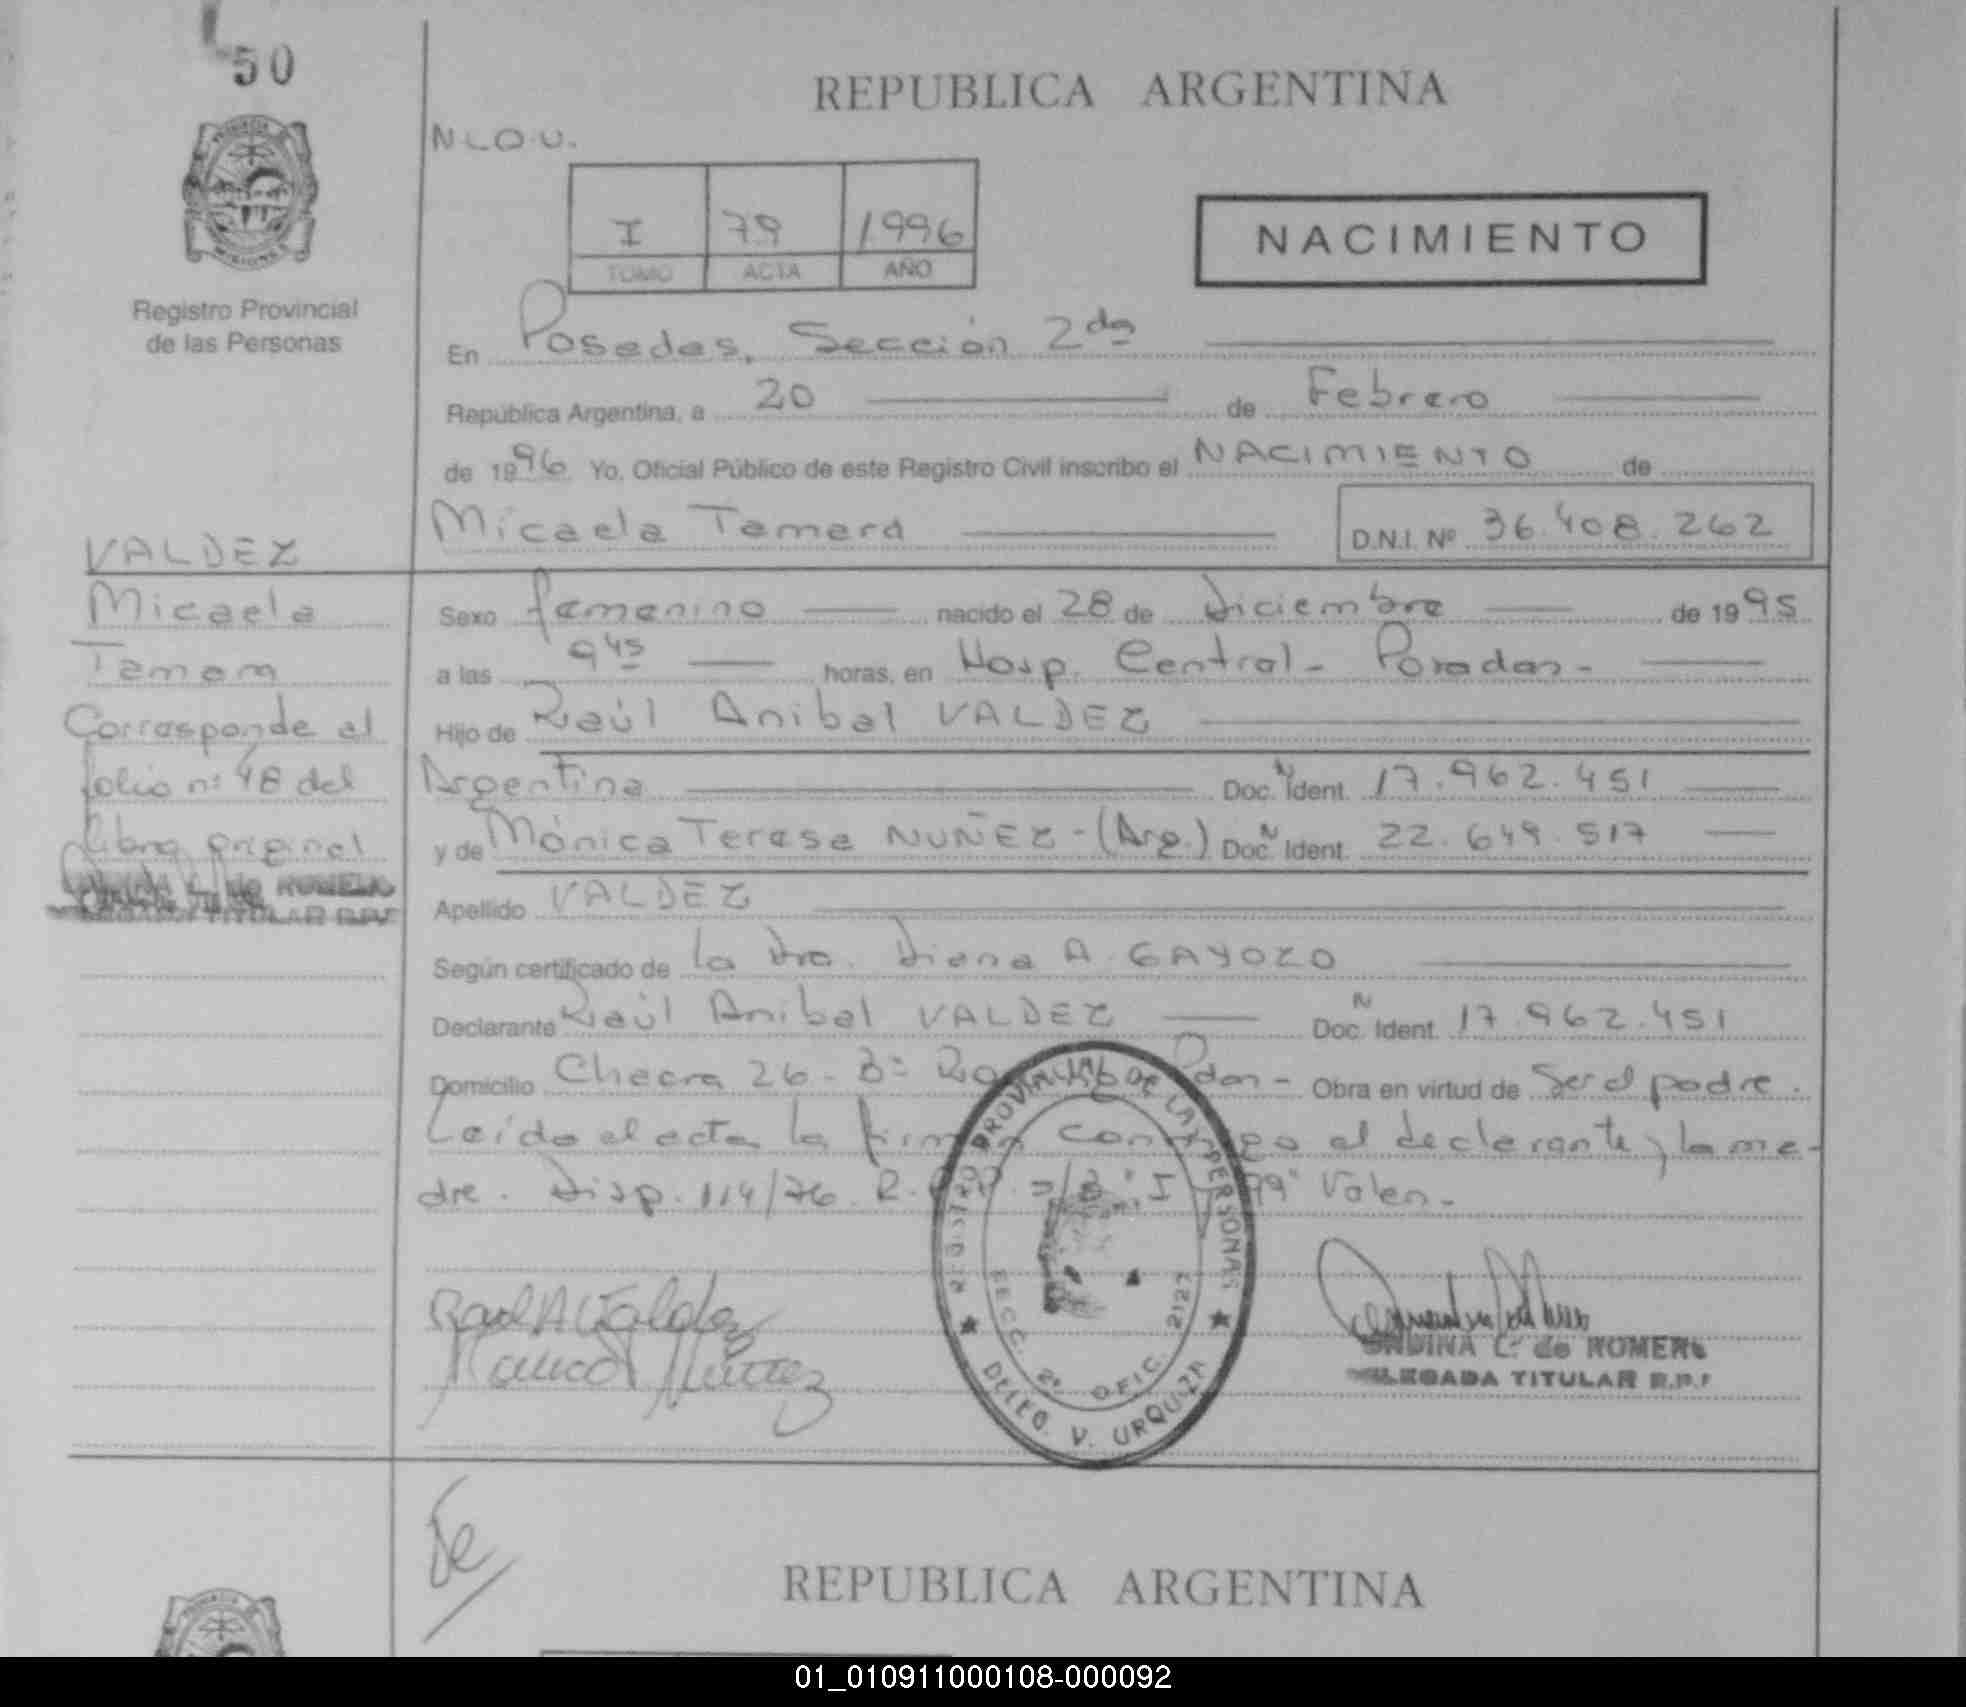 50
REPUBLICA ARGENTINA
N.L.O.U.
I 79 1996
TOMO ACTA AÑO
NACIMIENTO
Registro Provincial
de las Personas
En Posadas, Sección 2da
República Argentina, a 20 de Febrero
de 1996 Yo, Oficial Público de este Registro Civil inscribo el NACIMIENTO de
Micaela Tamara D.N.I. Nº 36.408.262
VALDEZ
Micaela
Tamara
Corresponde al
folio nº 48 del
libro original
TITULAR
Sexo femenino nacido el 28 de Diciembre de 1995
a las 9 45 horas, en Hosp. Central - Posadas -
Hijo de Raúl Anibal VALDEZ
Argentina Doc. N Ident. 17.962.451
y de Mónica Teresa NUÑEZ - (Arg.) Doc. N Ident. 22.649.517
Apellido VALDEZ
Según certificado de la Dra. Diana A. GAYOZO
Declarante Raúl Anibal VALDEZ Doc. N Ident. 17.962.451
Domicilio Chacra 26 - Bº Pdas - Obra en virtud de Ser el padre.
Leída el acta la firman conmigo el declarante y la ma-
dre. Disp. 114/76. R.P.P. "I 79" Valen.-
REGISTRO PROVINCIAL DE LAS PERSONAS
SECC. 2º OFIC. 2127
DELEG. V. URQUIZA
Raul A Valdez
Nuñez
ONDINA C. de ROMERO
DELEGADA TITULAR R.P.P
REPUBLICA ARGENTINA
01_010911000108-000092